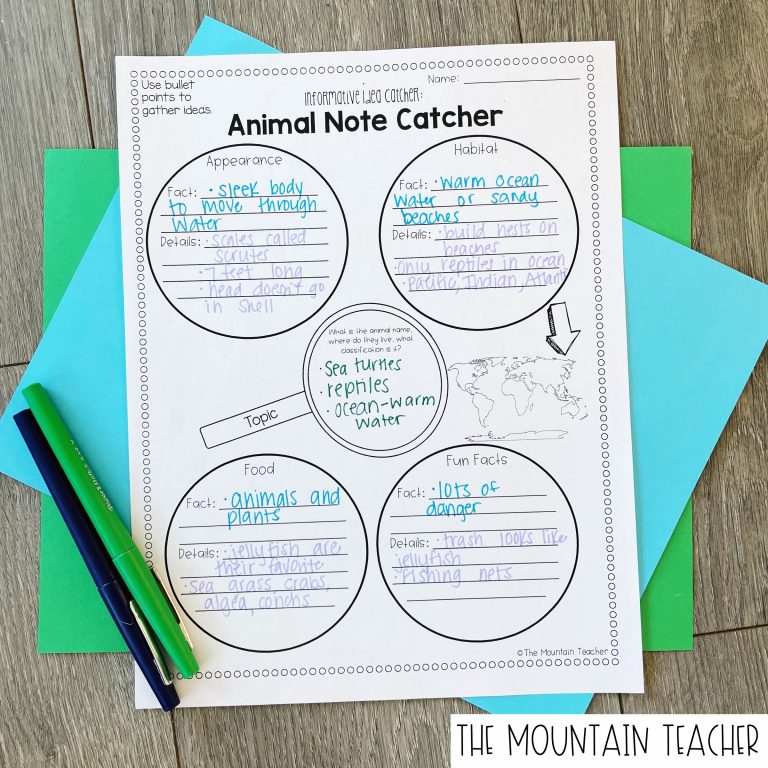 Use bullet
points to
gather ideas.
Name:
informative idea catcher:
Animal Note Catcher
Appearance
Fact: • sleek body
to move through
water
Details: • scales called
scrutes
• 7 feet long
• head doesn't go
in shell
Habitat
Fact: • warm ocean
water or sandy
beaches
Details: • build nests on
beaches
• Only reptiles in ocean
• Pacific, Indian, Atlantic
What is the animal name,
where do they live, what
classification is it?
• Sea turtles
• reptiles
• ocean-warm
water
Topic
Food
Fact: • animals and
plants
Details: • jellyfish are
their favorite
• Sea grass, crabs,
algea, conchs
Fun Facts
Fact: • lots of
danger
Details: • trash looks like
jellyfish
• Fishing nets
©The Mountain Teacher
THE MOUNTAIN TEACHER